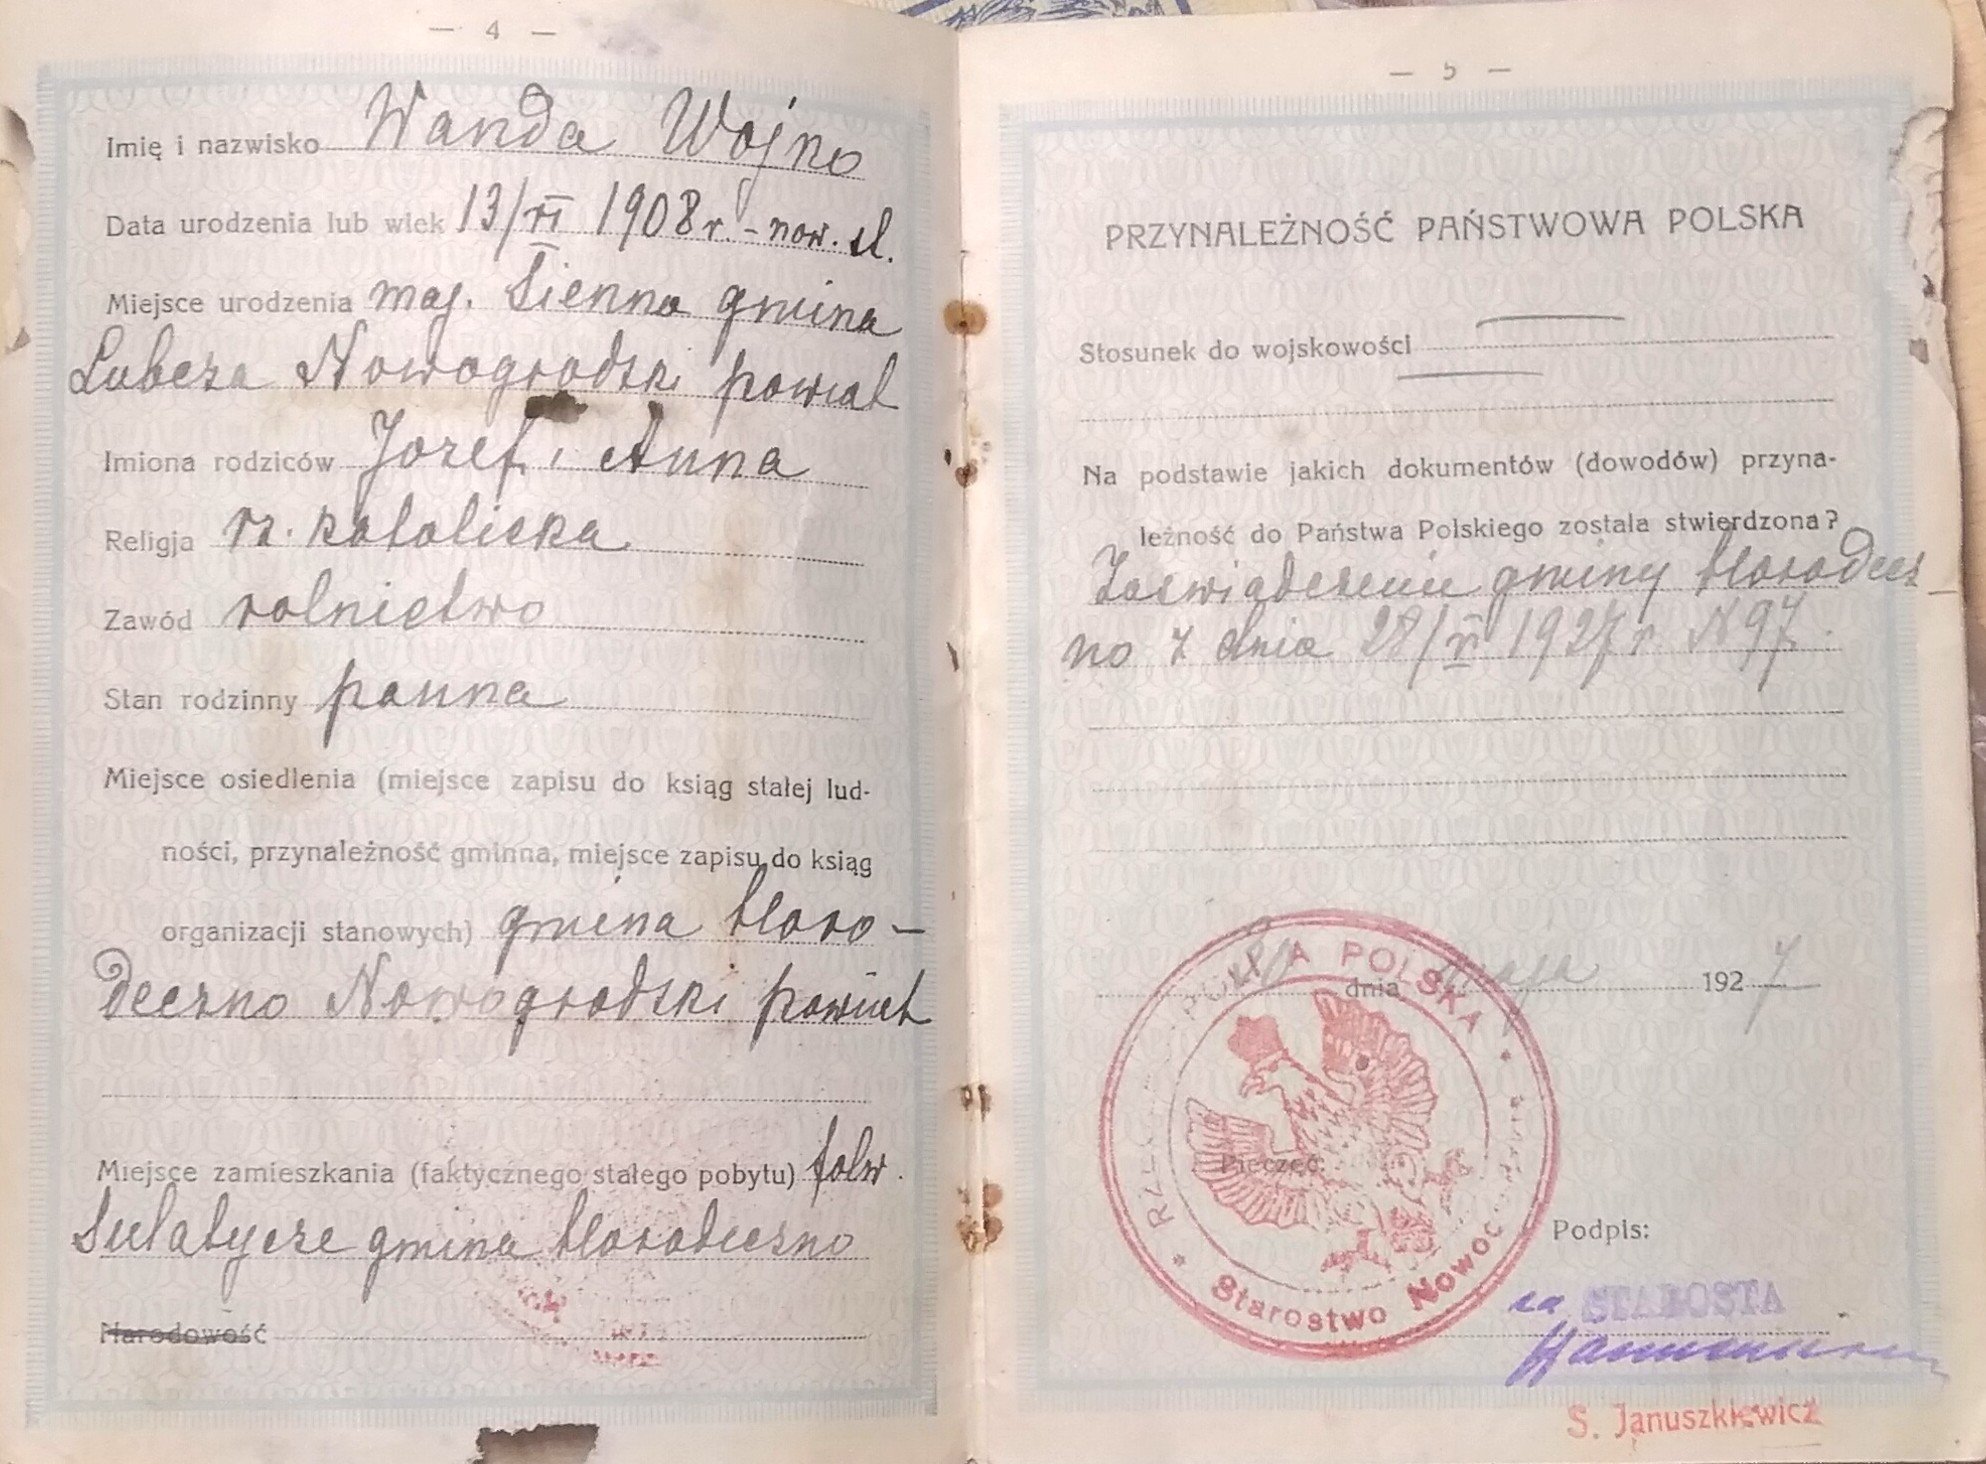 — 4 —
Imię i nazwisko Wanda Wojno
Data urodzenia lub wiek 13/VI 1908 r. - now. st.
Miejsce urodzenia maj. Sienna gmina
Lubcza Nowogrodzki powiat
Imiona rodziców Jozef i Anna
Religja rz. katolicka
Zawód rolnictwo
Stan rodzinny panna
Miejsce osiedlenia (miejsce zapisu do ksiąg stałej lud-
ności, przynależność gminna, miejsce zapisu do ksiąg
organizacji stanowych) gmina Horo-
deczno Nowogrodzki powiat
Miejsce zamieszkania (faktycznego stałego pobytu) folw.
Sulatycze gmina Horodeczno
Narodowość
— 5 —
PRZYNALEŻNOŚĆ PAŃSTWOWA POLSKA
Stosunek do wojskowości
Na podstawie jakich dokumentów (dowodów) przyna-
leżność do Państwa Polskiego została stwierdzona?
Zaświadczenie gminy Horodecz
no z dnia 28/VI 1927 r. N 97.
dnia maja 1927
POLSKA
Starostwo Nowog
Pieczęć:
Podpis:
za STAROSTA
S. Januszkiewicz